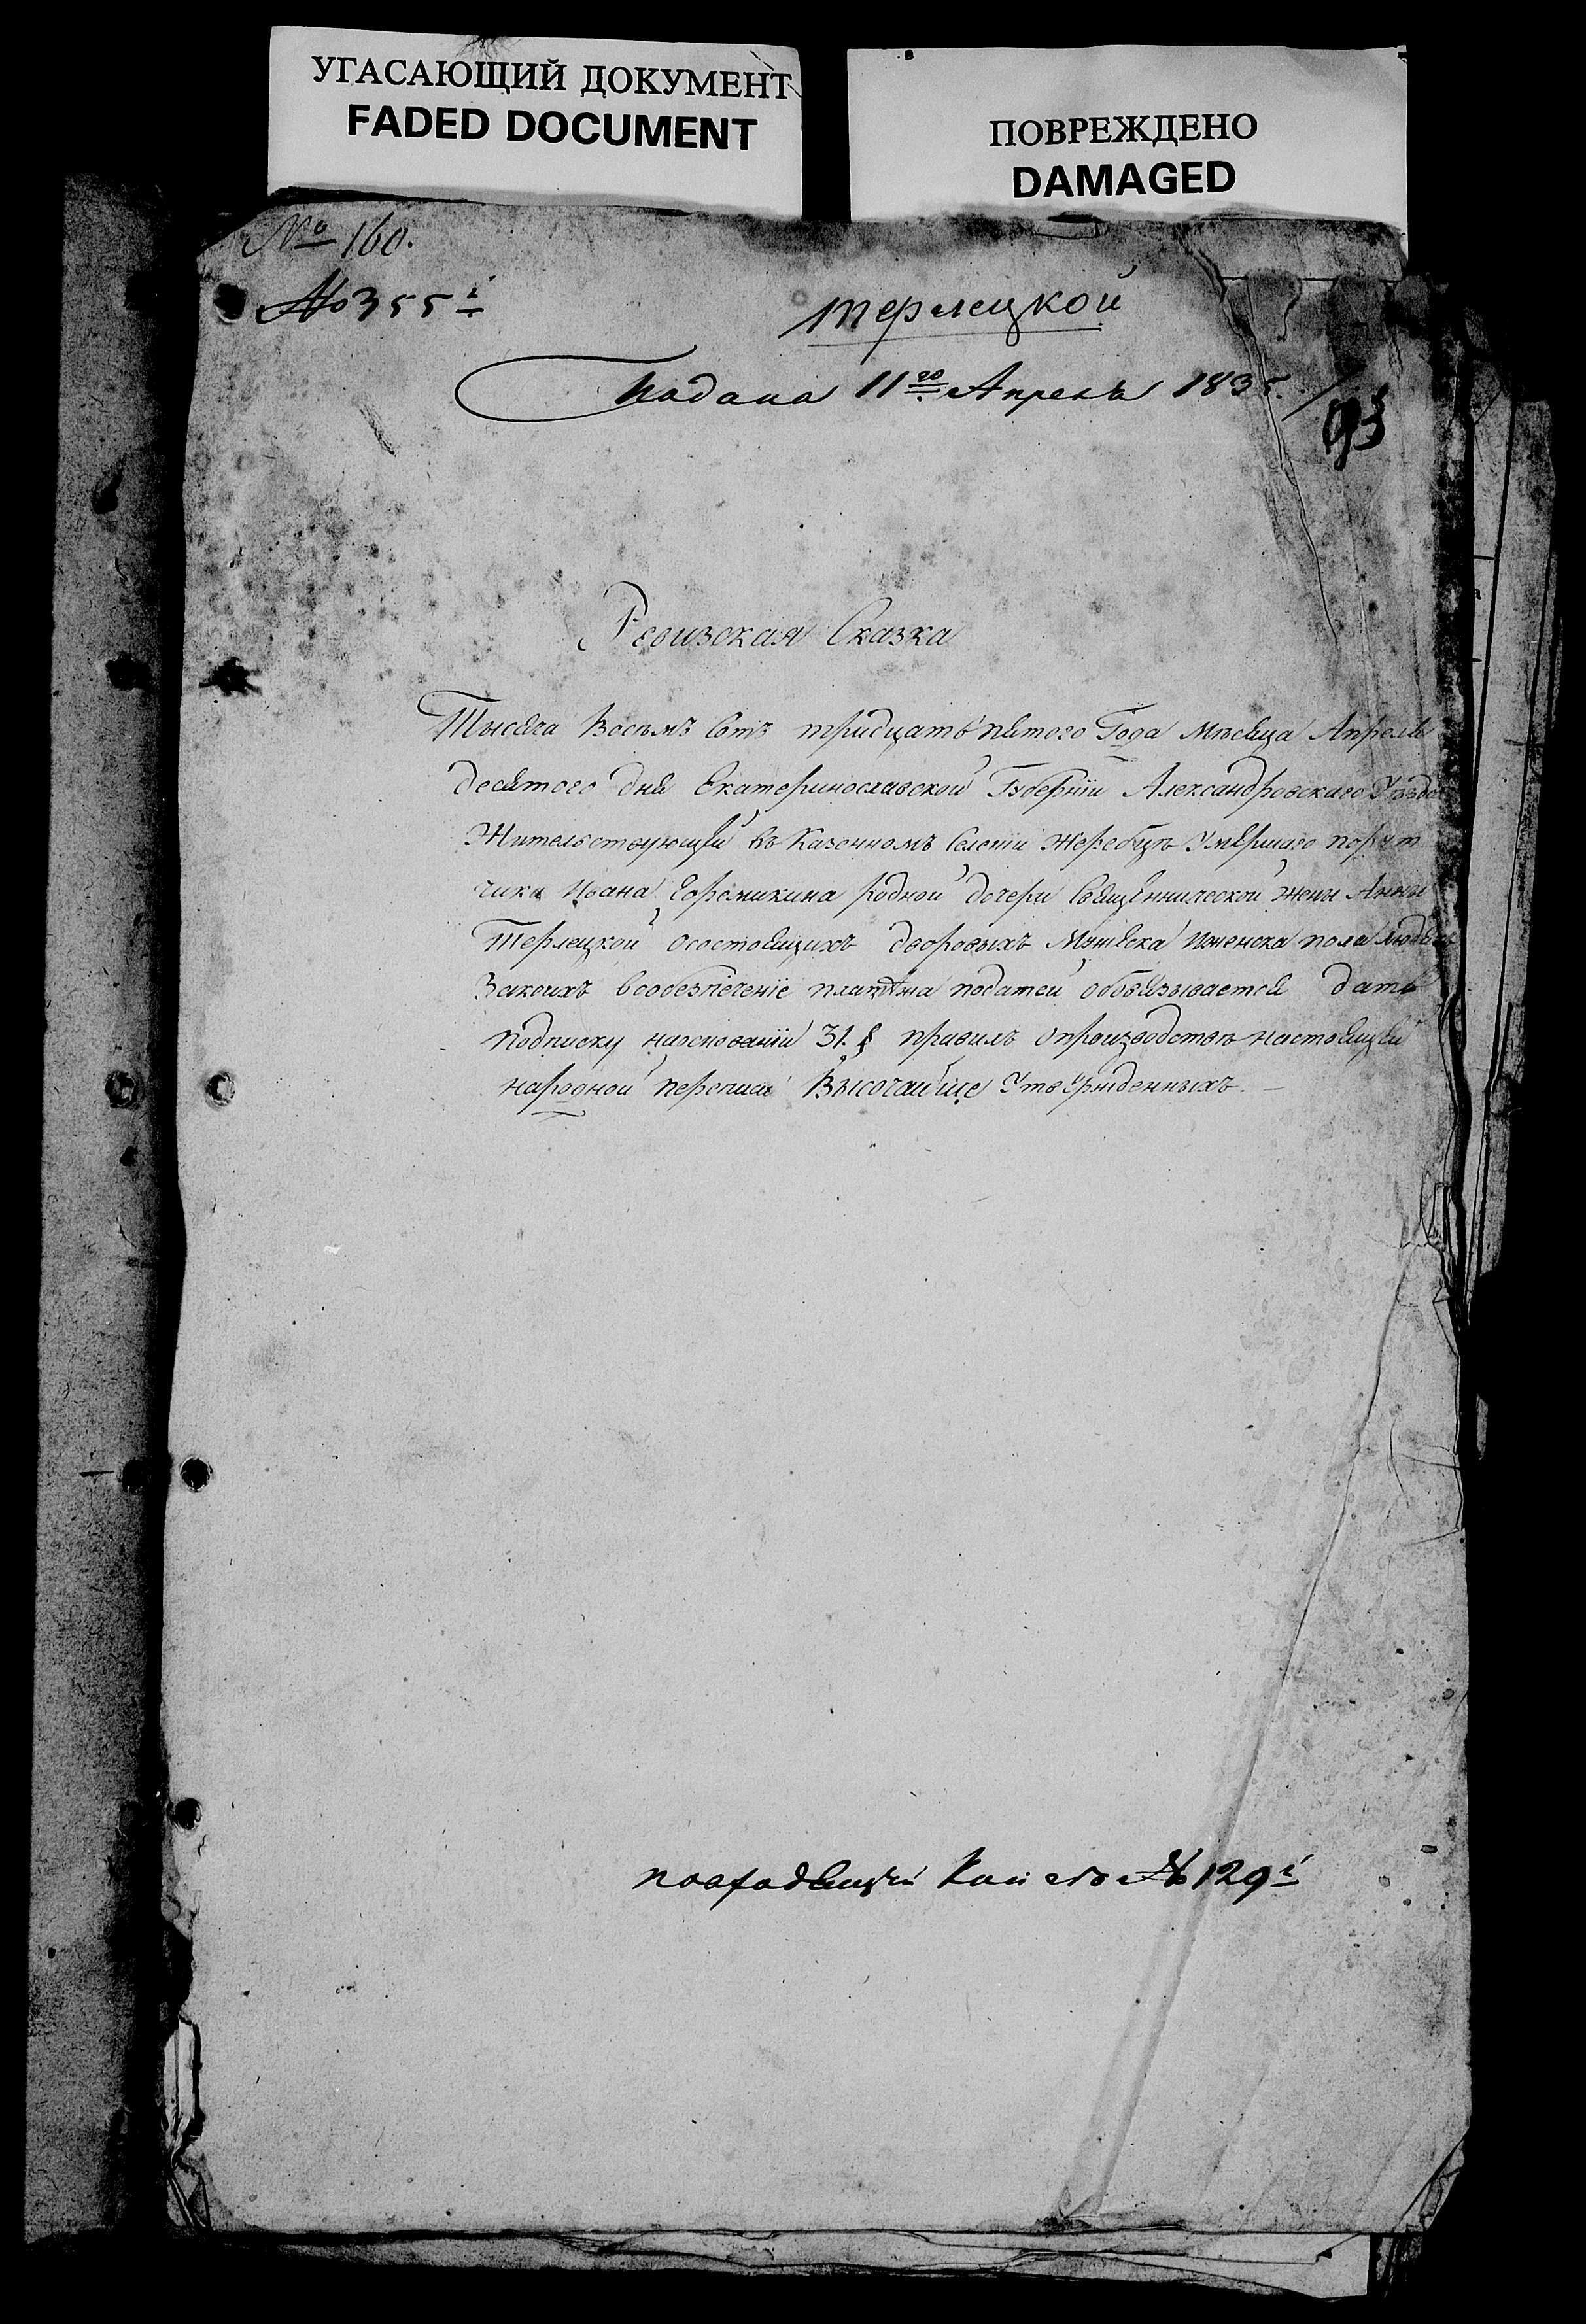 УГАСАЮЩИЙ ДОКУМЕНТ
FADED DOCUMENT
ПОВРЕЖДЕНО
DAMAGED
№ 160.
№ 355й
Терлецкой
Подана 11го Апреля 1835.
93
Ревизская Сказка
Тысяча Восемъ Сотъ тридцать пятого Года Мѣсяца Апреля
десятого дня Екатеринославской Губернїи Александровскаго Уѣзда
Жительствующей въ Казенномъ Селенїи Жеребцѣ Умершаго порут
чика Ивана родной дочери Священнической жены Анны
Терлецкой осостоящихъ дворовыхъ Мужеска Иженска пола людяхъ
Закоихъ вообезпеченїе податей обовязывается дать
подписку наоснованїи 31. § правилъ опроизводствѣ настоящей
народной переписи Высочайше Утвержденныхъ. —
№ 129й